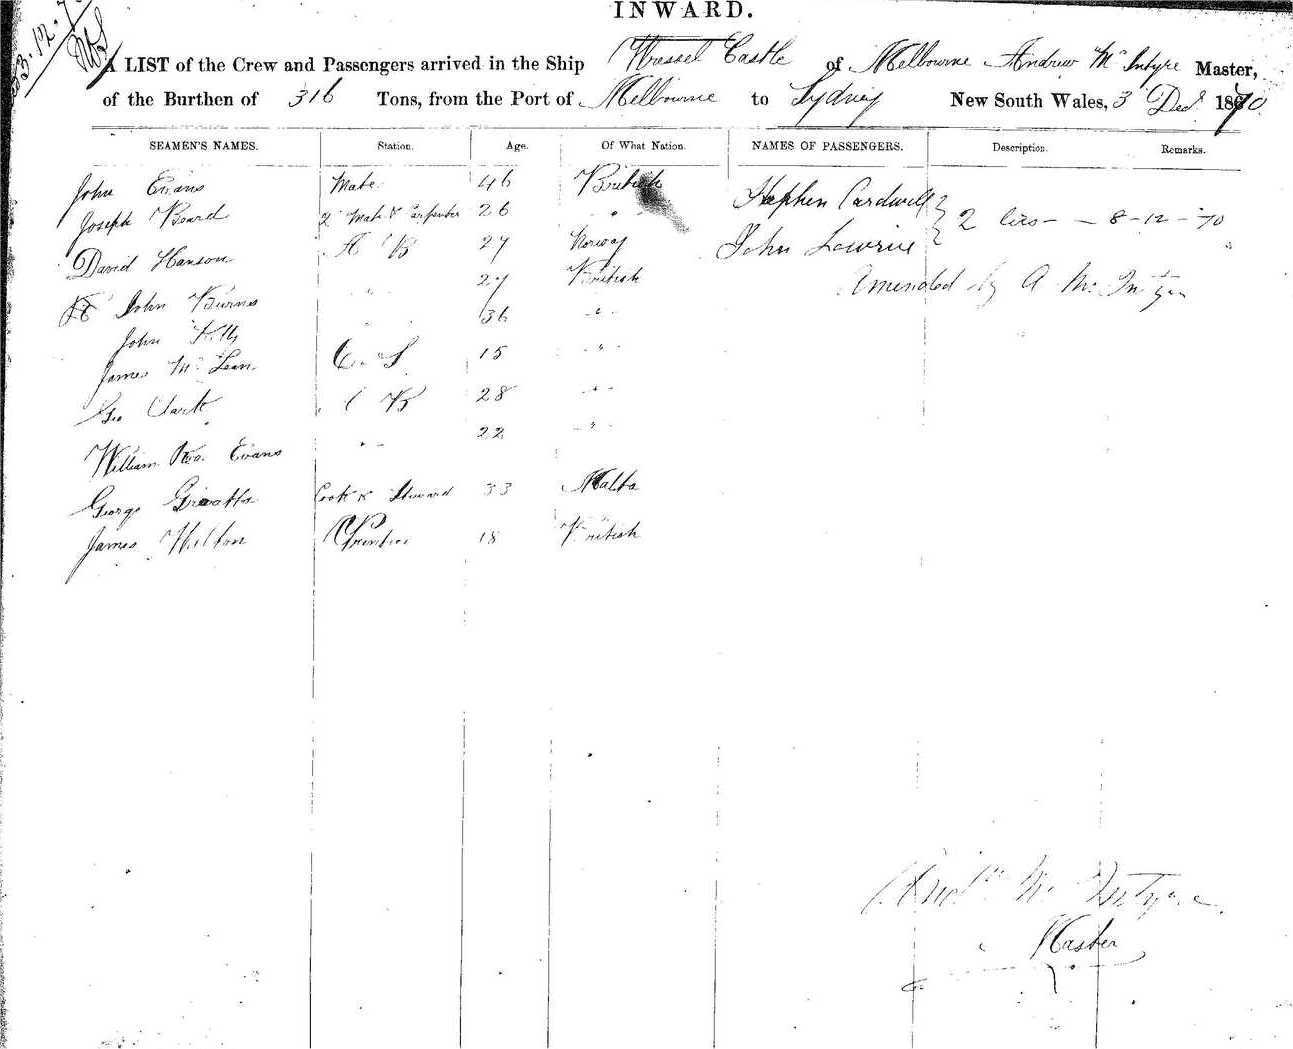 INWARD.
3.12.7
A LIST of the Crew and Passengers arrived in the Ship Wressel Castle of Melbourne Andrew Mc Intyre Master,
of the Burthen of 316 Tons, from the Port of Melbourne to Sydney New South Wales, 3 Decr 1870
SEAMEN'S NAMES. Station. Age. Of What Nation. NAMES OF PASSENGERS. Description. Remarks.
John Evans Mate 46 British Stephen Cardwell
Joseph Beard 2d Mate & Carpenter 26 " 2 8-12-70
David Hanson A B 27 Norway John Lowrie
John Burns " 27 British Amended by A Mc Intyre
John Kelly " 36 "
James Mc Lean O S 15 "
Geo Clark A B 28 "
William Evans " 22 "
George Cook & Steward 33 Malta
James Hilton Prentice 18 British
Andw Mc Intyre
Master